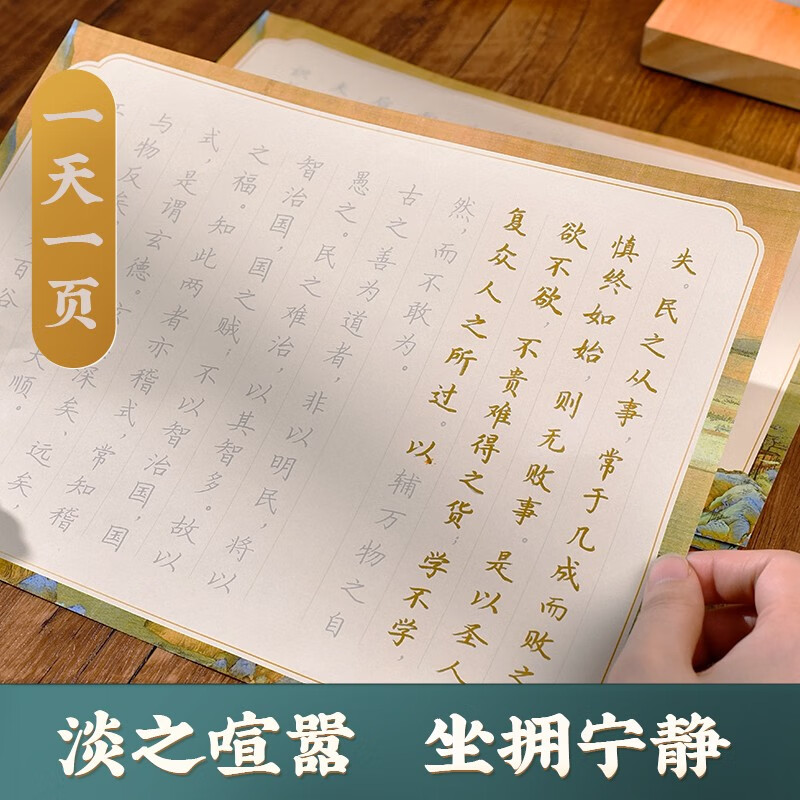 一天一页
失。民之从事,常于几成而败之
慎终如始,则无败事。是以圣人
欲不欲,不贵难得之货;学不学,
复众人之所过。以辅万物之自
然,而不敢为。
古之善为道者,非以明民,将以
愚之。民之难治,以其智多。故以
智治国,国之贼;不以智治国,国
之福。知此两者亦稽式,常知稽
式,是谓玄德。深矣、远矣,
与物反矣,大顺。
百谷
淡之喧嚣 坐拥宁静